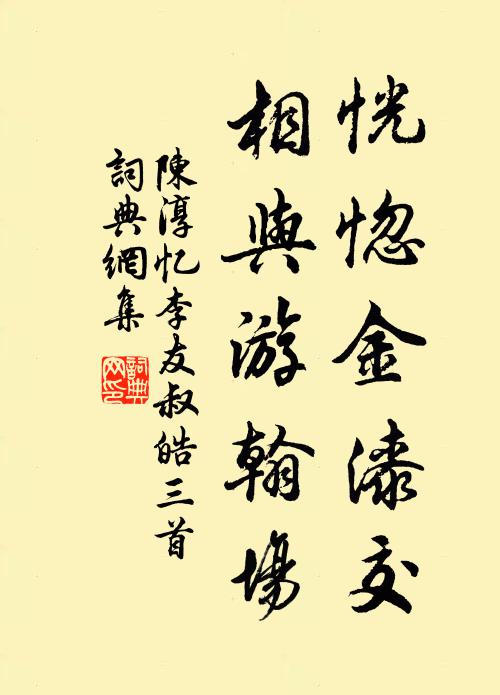 恍惚金漆交
相與游翰場
陳淳忆李友叔皓三首
詞典網集
詞典网印